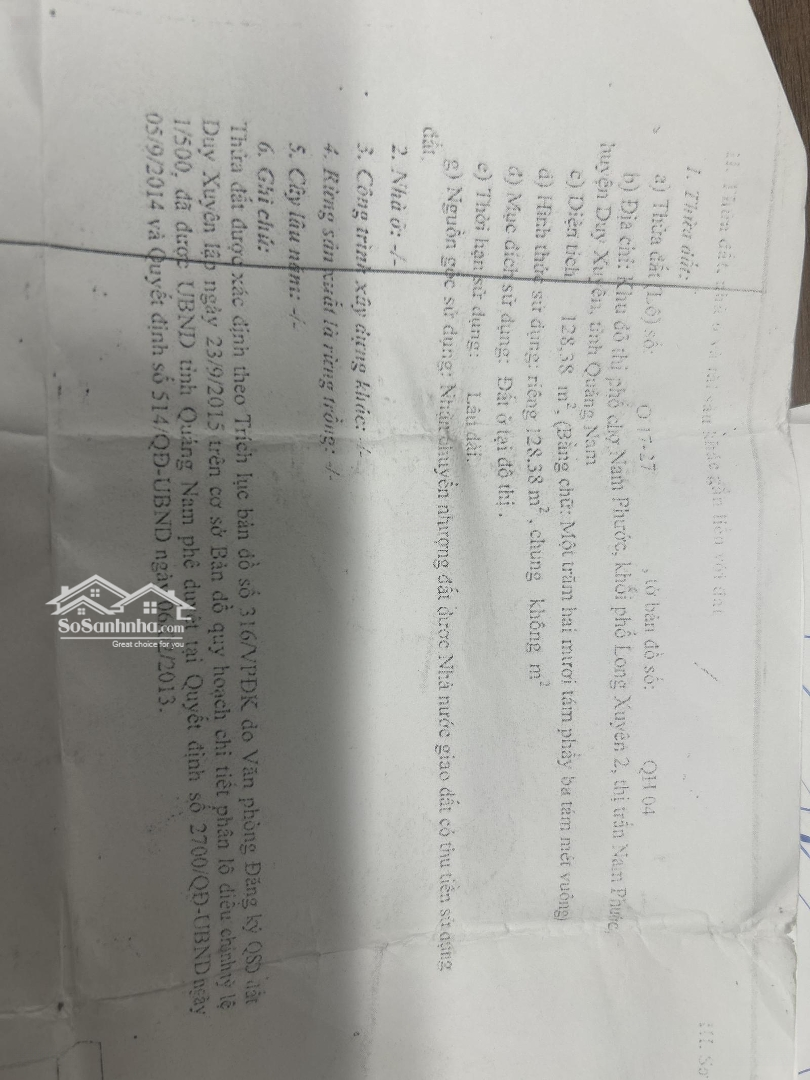 II. Thửa đất, nhà ở và tài sản khác gắn liền với đất
1. Thửa đất:
a) Thửa đất (Lô) số: O 17-27 , tờ bản đồ số: QH 04
b) Địa chỉ: Khu đô thị phố chợ Nam Phước, khối phố Long Xuyên 2, thị trấn Nam Phước,
huyện Duy Xuyên, tỉnh Quảng Nam
c) Diện tích 128,38 m², (Bằng chữ: Một trăm hai mươi tám phẩy ba tám mét vuông)
d) Hình thức sử dụng: riêng 128.38 m² , chung không m²
đ) Mục đích sử dụng: Đất ở tại đô thị .
e) Thời hạn sử dụng: Lâu dài.
g) Nguồn gốc sử dụng: Nhận chuyển nhượng đất được Nhà nước giao đất có thu tiền sử dụng
đất.
2. Nhà ở: -/-
3. Công trình xây dựng khác: -/-
4. Rừng sản xuất là rừng trồng: -/-
5. Cây lâu năm: -/-
6. Ghi chú:
Thửa đất được xác định theo Trích lục bản đồ số 316/VPĐK do Văn phòng Đăng ký QSD đất
Duy Xuyên lập ngày 23/9/2015 trên cơ sở Bản đồ quy hoạch chi tiết phân lô điều chỉnh tỷ lệ
1/500, đã được UBND tỉnh Quảng Nam phê duyệt tại Quyết định số 2700/QĐ-UBND ngày
05/9/2014 và Quyết định số 514/QĐ-UBND ngày /2013.
III. Sơ
SoSanhnha.com
Great choice for you